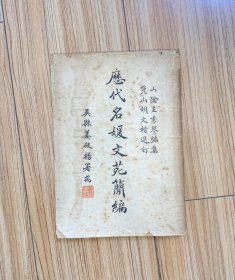 山陰王秀琴編集
崑山胡文楷選訂
歷代名媛文苑簡編
吳縣姜殷揚署耑